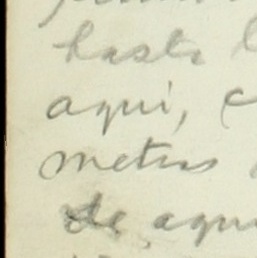 hasta
aqui, c
metros
de aqui